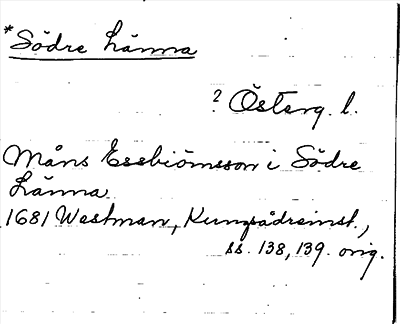 *Södre Länna
? Österg. l.
Måns Essbiörnsson i Södre
Länna
1681 Westman, Kungsådreinst.,
ss. 138, 139. orig.